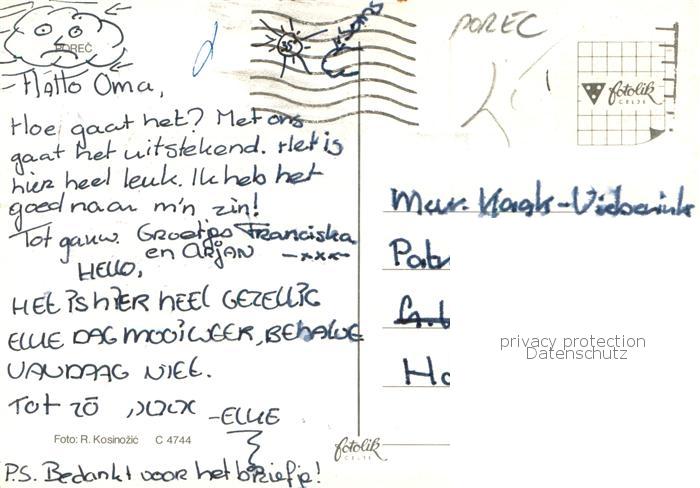 POREČ
35°
POREC
fotolik
CELJE
Hallo Oma,
Hoe gaat het? Met ons
gaat het uitstekend. Het is
hier heel leuk. Ik heb het
goed naar m'n zin!
Tot gauw. Groetjes Franciska
en Arjan -xxx-
HELLO,
HET IS HIER HEEL GEZELLIG
ELKE DAG MOOI WEER, BEHALVE
VANDAAG NIET.
TOT ZO ,XXX -ELLIE
Foto: R. Kosinožić C 4744
P.S. Bedankt voor het briefje!
fotolik
CELJE
Mevr.
Patr
Ho
privacy protection
Datenschutz